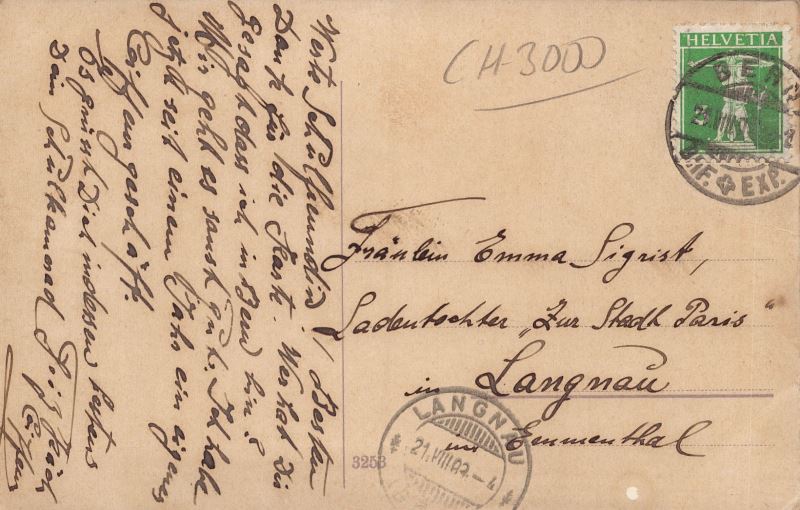 Werte Schulfreundin! Besten
Dank für die Karte. Wer hat Dir
gesagt dass ich in Bern bin?
Mir geht es sonst gut. Ich habe
jetzt seit einem Jahr ein eigenes
Coiffeurgeschäft.
Es grüsst Dich indessen bestens
Dein Schulkamerad
CH 3000
HELVETIA
BERN
BRF. EXP.
Fräulein Emma Sigrist,
Ladentochter „Zur Stadt Paris"
in Langnau
im Emmenthal
LANGNAU
21.VIII.09.-4
3253